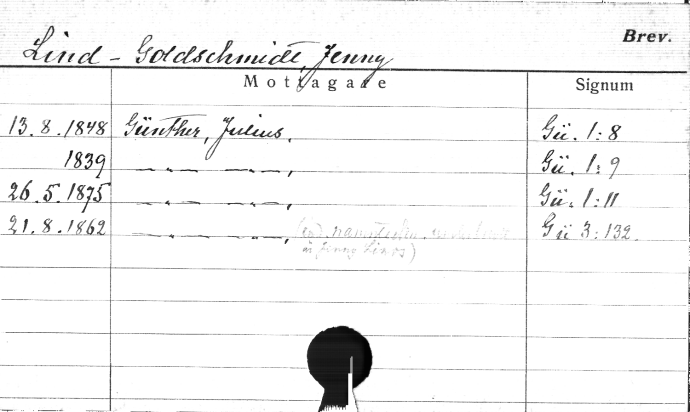 Brev.
Lind - Goldschmidt, Jenny
Mottagare Signum
13.8.1848 Günther, Julius. Gü. 1:8
1839 — " — — " —, Gü. 1:9
26.5.1875 — " — — " —, Gü. 1:11
21.8.1862 — " — — " —, (en) Gü 3:132.
är Jenny Linds)